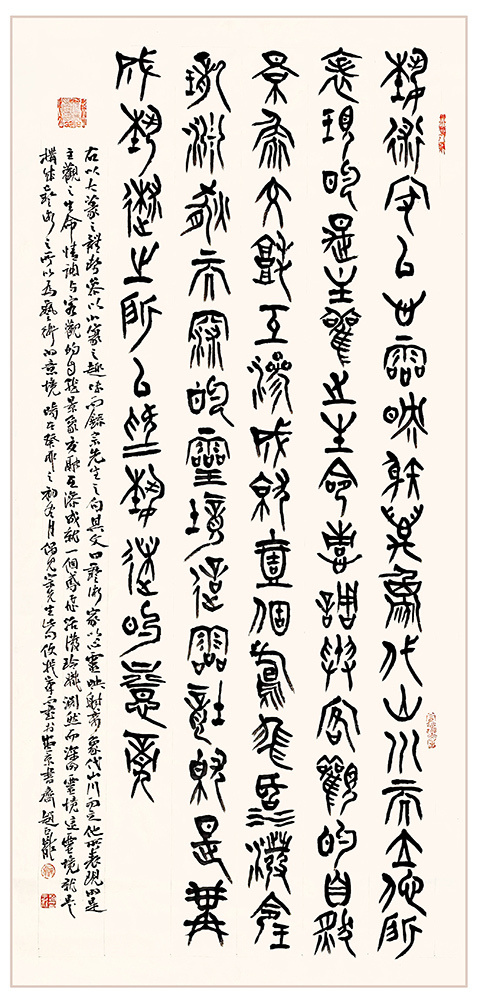 藝術家以心靈映射萬象代山川而立他所
表現的是主觀之生命情調與客觀的自然
景象交融互滲成就壹個鳶飛活潑玲
瓏淵然而深的靈境這靈境就是構
成藝術之所以為藝術的意境
右以大篆之體勢參以小篆之趣味而錄宗先生之句其文曰藝術家以心靈映射萬象代山川而立他所表現的是
主觀之生命情調与客觀的自然景象交融互滲成就一個鳶飛活潑玲瓏淵然而深的靈境這靈境就是
構成藝術之所以為藝術的意境時在癸卯之初冬月偶見宗先生此句欣然 書於 京書齋趙